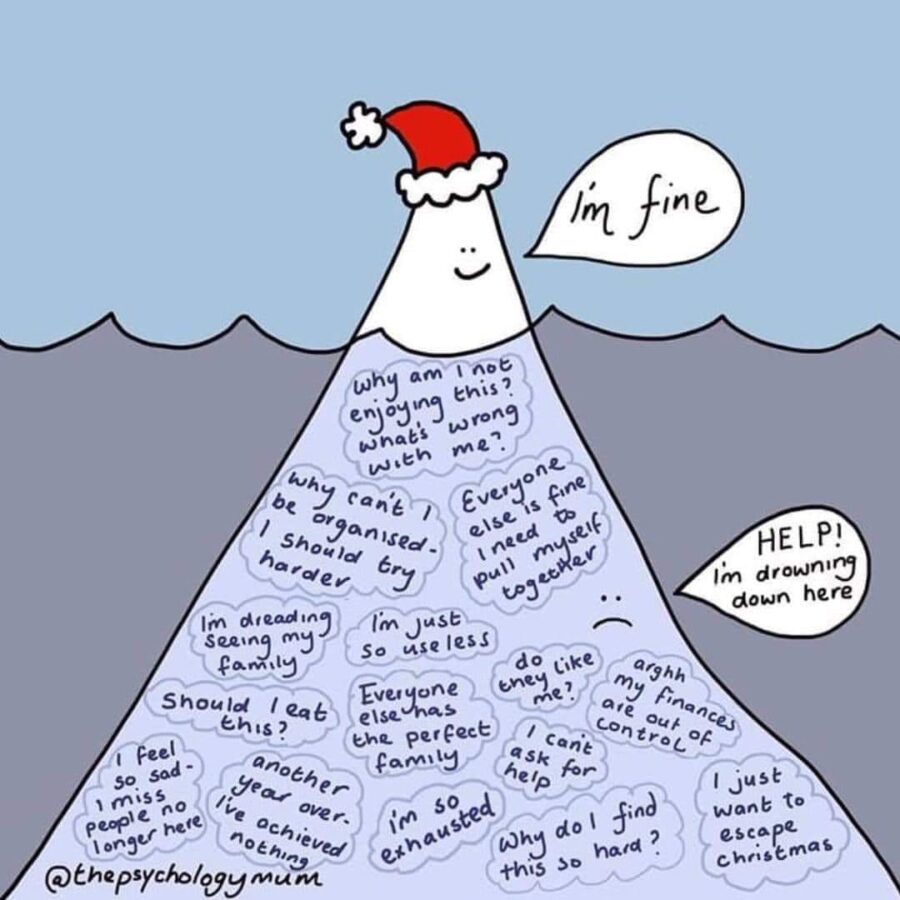 I'm fine
Why am I not
enjoying this?
what's wrong
with me?
why can't I
be organised-
I should try
harder
Everyone
else is fine
I need to
pull myself
together
HELP!
I'm drowning
down here
I'm dreading
seeing my
family
I'm just
so useless
do
they like
me?
arghh
my finances
are out of
control
Should I eat
this?
Everyone
else has
the perfect
family
I can't
ask for
help
I feel
so sad-
I miss
people no
longer here
another
year over-
I've achieved
nothing
i'm so
exhausted
Why do I find
this so hard?
I just
want to
escape
christmas
@thepsychologymum